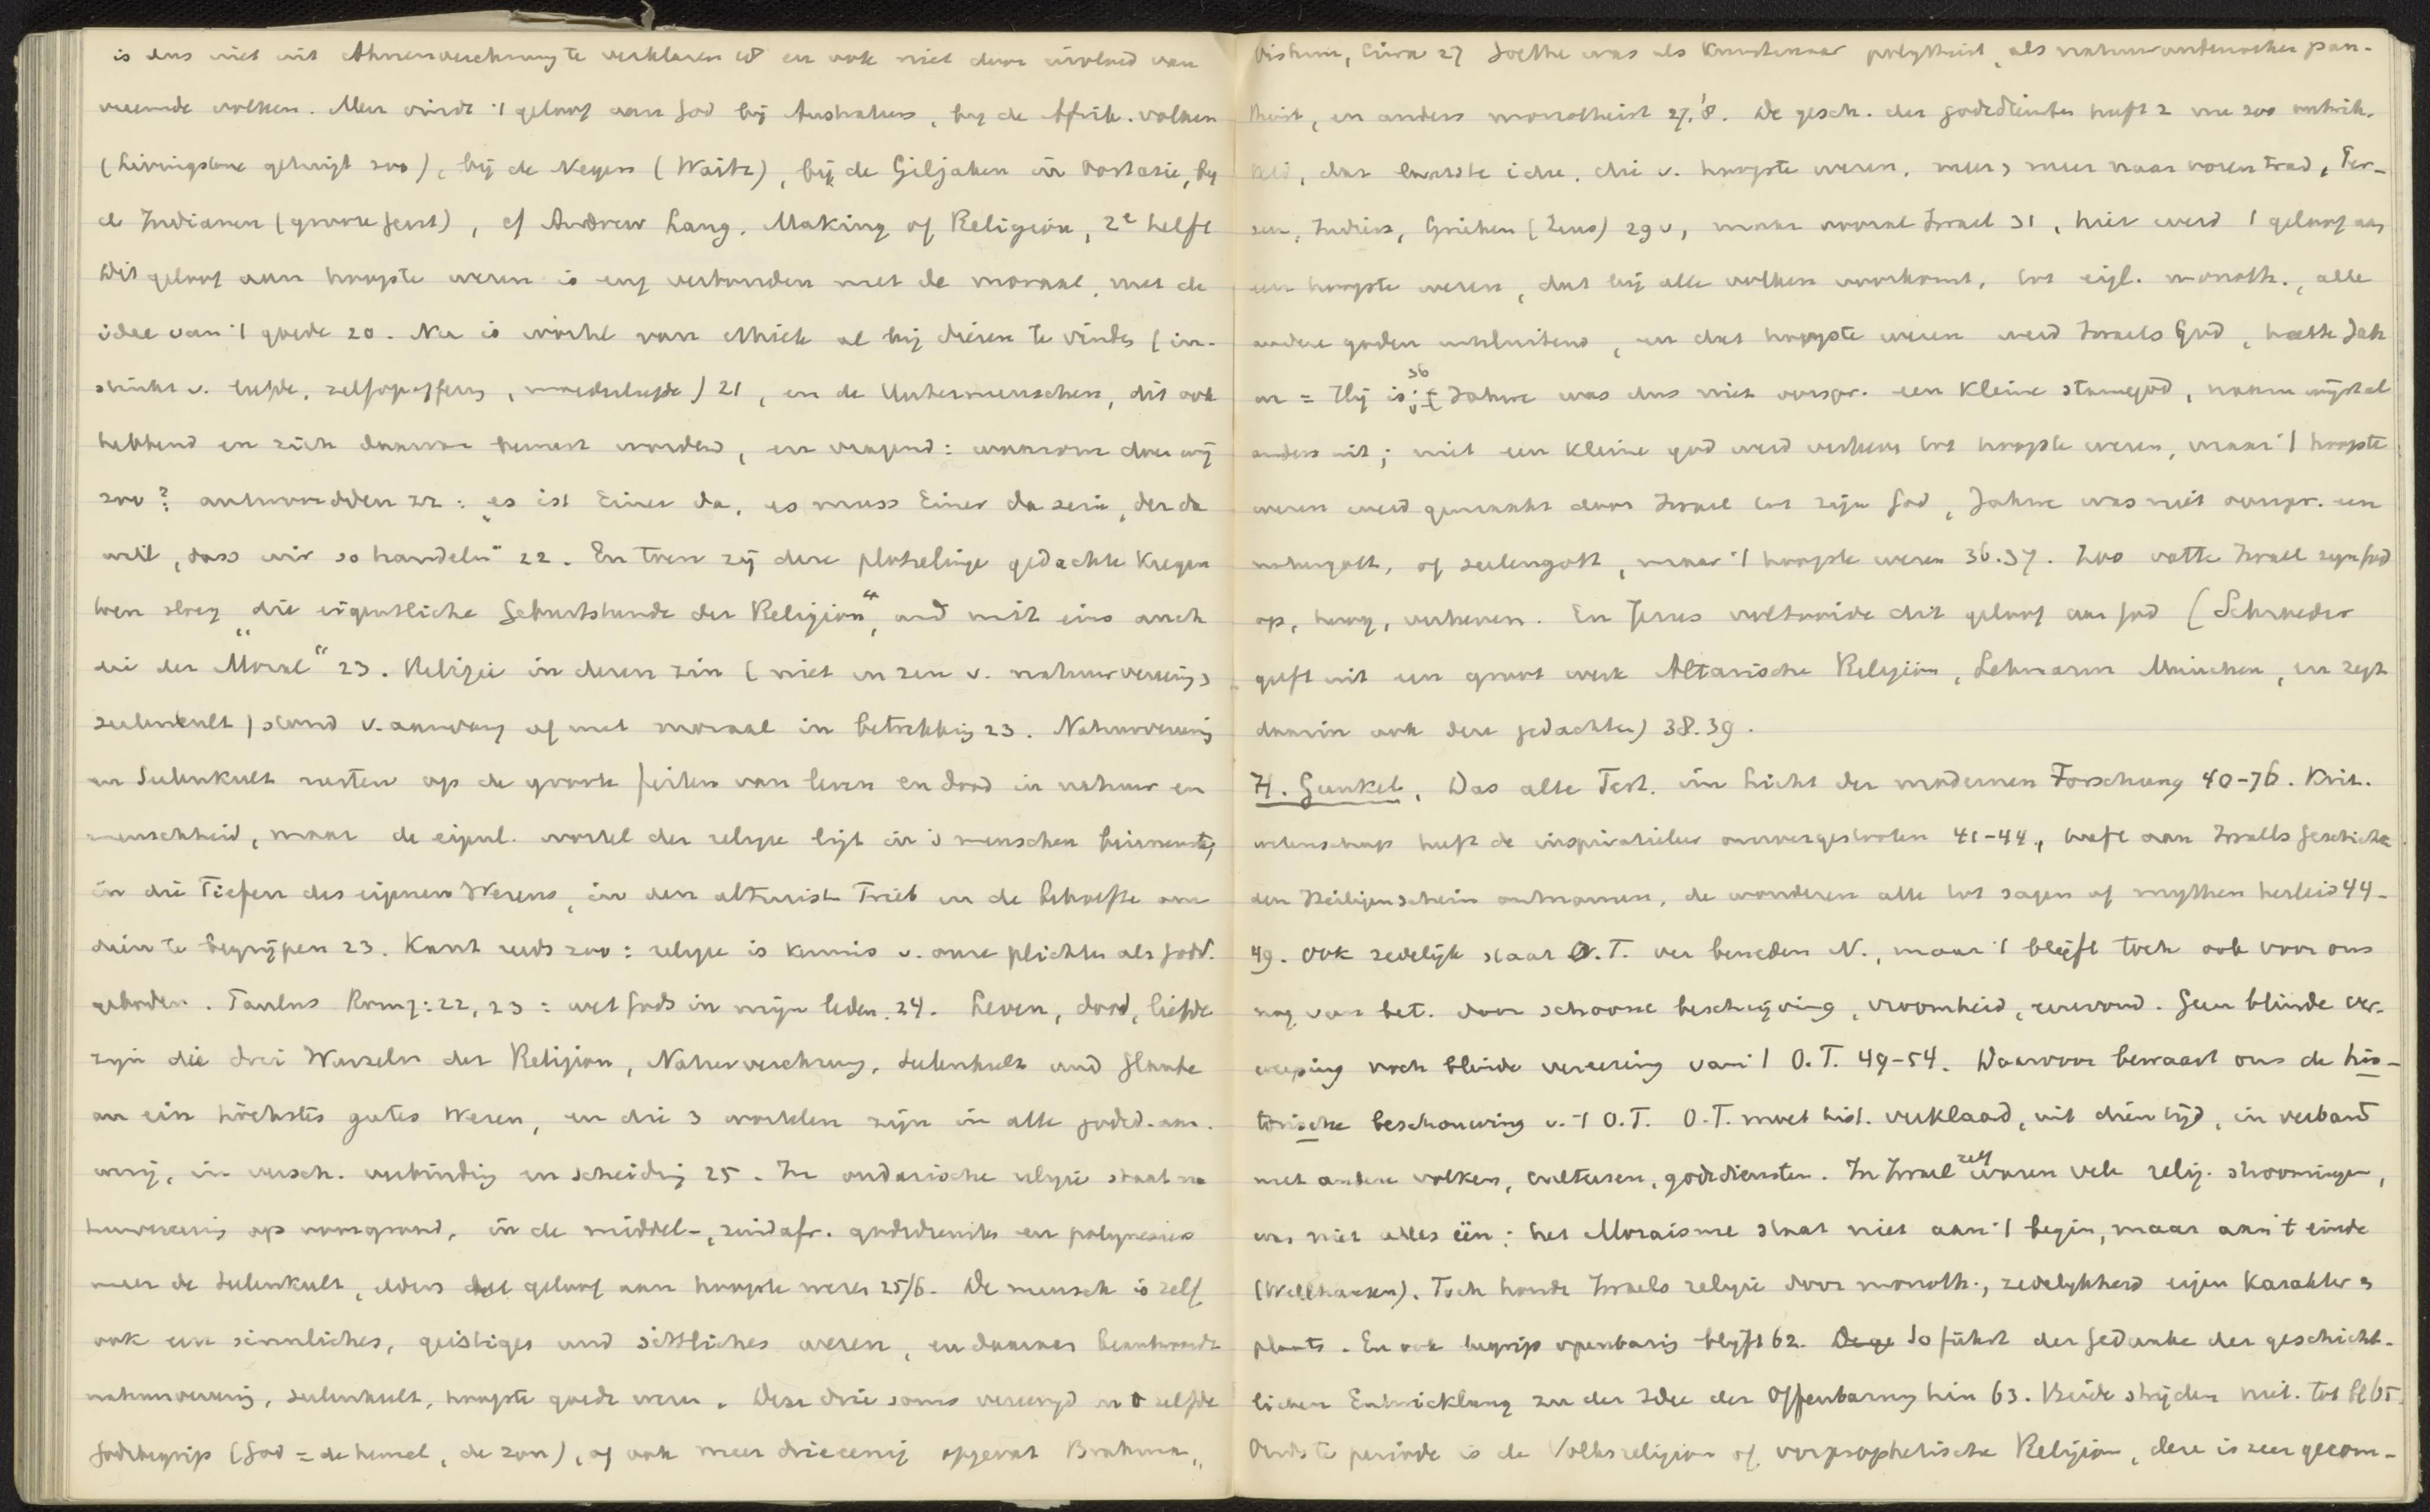 is dus niet uit Ahnenverehrung te verklaren 18 en ook niet door invloed van
vreemde volken. Men vindt 't geloof aan God bij Australiers, bij de Afrik. volken
(Livingstone getuigt zoo), bij de Negers (Waitz), bij de Giljaken in Oostazie, bij
de Indianen (groote Geest), cf Andrew Lang, Making of Religion, 2e helft
Dit geloof aan hoogste wezen is eng verbonden met de moraal, met de
idee van 't goede 20. Nu is wortel van ethiek al bij dieren te vinden (in-
stinkt v. liefde, zelfopoffering, moederliefde) 21, en de Untermenschen, dit ook
hebbend en zich daarvan bewust wordend, en vragend: waarom doen wij
zoo? antwoordden 22: „es ist Einer da, es muss Einer da sein, der da
will, dass wir so handeln" 22. En toen zij deze plotselinge gedachte kregen
toen sloeg „die eigentliche Geburtsstunde der Religion", und mit eins auch
„die der Moral" 23. Religie in dezen zin (niet in zin v. natuurvereering &
seelenkult) stond v. aanvang af met moraal in betrekking 23. Natuurvereering
en Seelenkult rusten op de groote feiten van leven en dood in natuur en
menschheid, maar de eigenl. wortel der religie ligt in 's menschen binnenste,
in die Tiefen des eignen Wesens, in den altruist. Trieb en de behoefte om
dien te begrijpen 23. Kant reeds zoo: religie is kennis v. onze plichten als godd.
geboden. Paulus Rom 7:22, 23: wet Gods in mijn leden. 24. Leven, dood, liefde
zijn die drei Wurzeln der Religion, Naturverehrung, Seelenkult und Glaube
an ein höchstes gutes Wesen, en die 3 wortelen zijn in alle godsd. aan-
wezig, in versch. verbinding en scheiding 25. In oudarische religie staat na-
tuurvereering op voorgrond, in de middel-, zuidafr. godsdiensten en polynesiers
meer de Seelenkult, elders het geloof aan hoogste wezen 25/6. De mensch is zelf
ook een sinnliches, geistiges und sittliches wezen, en daaraan beantwoordt
natuurvereering, seelenkult, hoogste goede wezen. Deze drie soms vereenigd in 't zelfde
Godsbegrip (God = de hemel, de zon), of ook meer drieeenig opgevat Brahma,
Vishnu, Çiwa 27 Goethe was als Kunstenaar polytheist, als natuuronderzoeker pan-
theist, en anders monotheist 27, '8. De gesch. der godsdiensten heeft z. nu zoo ontwik-
keld, dat laatste idee, die v. hoogste wezen, meer & meer naar voren trad, Per-
zen, Indiers, Grieken (Zeus) 29v, maar vooral Israel 31, hier werd 't geloof aan
een hoogste wezen, dat bij alle volken voorkomt, tot eigl. monoth., alle
andere goden uitsluitend, en dat hoogste wezen werd Israels God, heette Jah
ve = Hij is; 36 Jahve was dus niet oorspr. een kleine stamgod, naam wijst al
anders uit; niet een kleine god werd verheven tot hoogste wezen, maar 't hoogste
wezen werd gemaakt door Israel tot zijn God, Jahve was niet oorspr. een
natuurgott, of seelengott, maar 't hoogste wezen 36.37. Zoo vatte Israel zijn God
op, hoog, verheven. En Jezus voltooide dit geloof aan God (Schroeder
geeft uit een groot werk Altarische Religion, Lehmann München, en zegt
daarin ook deze gedachten) 38.39.
H. Gunkel, Das alte Test. im Licht der modernen Forschung 40-76. Krit.
wetenschap heeft de inspiratieleer omvergestooten 41-44, heeft aan Israels Geschichte
den Heiligenschein ontnomen, de wonderen alle tot sagen of mythen herleid 44-
49. Ook zedelijk staat O.T. ver beneden N., maar 't blijft toch ook voor ons
nog van bet. door schoone beschrijving, vroomheid, eenvoud. Geen blinde ver-
werping noch blinde vereering van 't O.T. 49-54. Daarvoor bewaart ons de his-
torische beschouwing v. 't O.T. O.T. moet hist. verklaard, uit dien tijd, in verband
met andere volken, culturen, godsdiensten. In Israel zelf waren vele relig. stroomingen,
was niet alles één: het Mozaisme staat niet aan 't begin, maar aan 't einde
(Wellhausen). Toch houdt Israels religie door monoth., zedelijkheid eigen karakter &
plaats. En ook begrip openbaring blijft 62. So führt der Gedanke der geschicht-
lichen Entwicklung zu der Idee der Offenbarung hin 63. Beide strijden niet. tot bl 65.
Oudste periode is de Volksreligion of vorprophetische Religion, deze is zeer gecom-